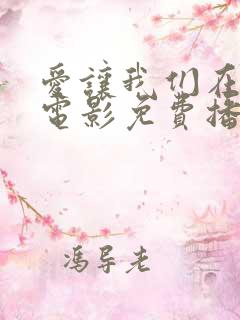 爱讓我们在
電影免費播
馮导老